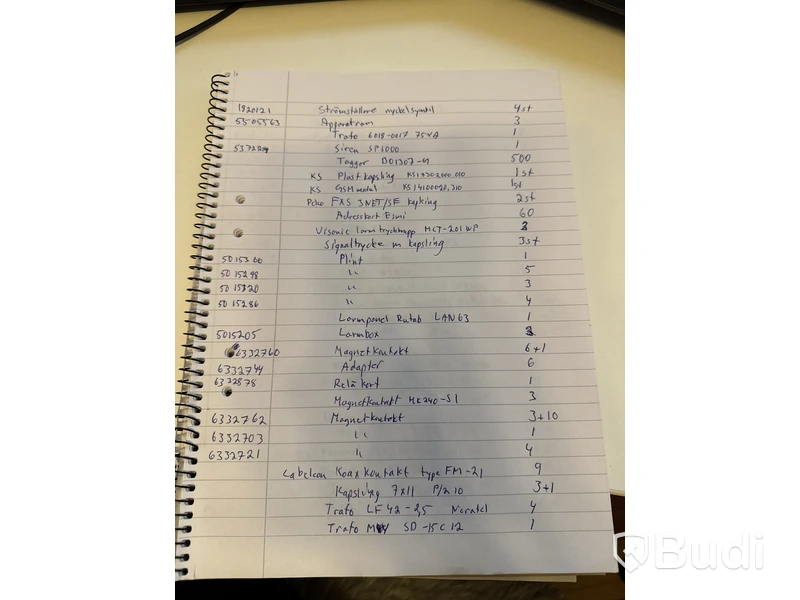 1820121 Strömställare nyckel symbol 4st
5505563 Apparatram 3
Trafo 6018-0017 75VA 1
Siren SP1000 1
Taggar DO1307-M 500
KS Plastkapsling 1st
KS GSM modul 1st
FXS 3NET/SF 2st
Adresskort Esmi 60
Visonic larmtryckknapp MCT-201WP
Signaltrycke m kapsling 3st
5015300 Plint 1
5015298 " 5
5015320 " 3
5015286 " 4
Larmpanel Rutab LAN63 1
5015205 Larmbox
6332760 Magnetkontakt 6+1
6332744 Adapter 6
6332878 Relä kort 1
Magnetkontakt MK240-S1 3
6332762 Magnetkontakt 3+10
6332703 " 1
6332721 " 4
Labelcon Koaxkontakt type FM-21 9
Kapsling 7x11 P/210 3+1
Trafo LF42-2,5 4
Trafo SD-15C12 1
Budi